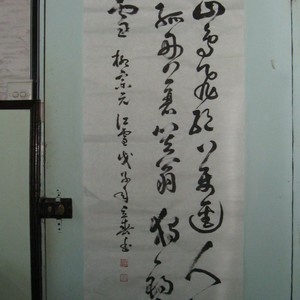 山鳥飛絕万逕人
孤舟蓑笠翁獨釣
雪 柳宗元江雪戊子